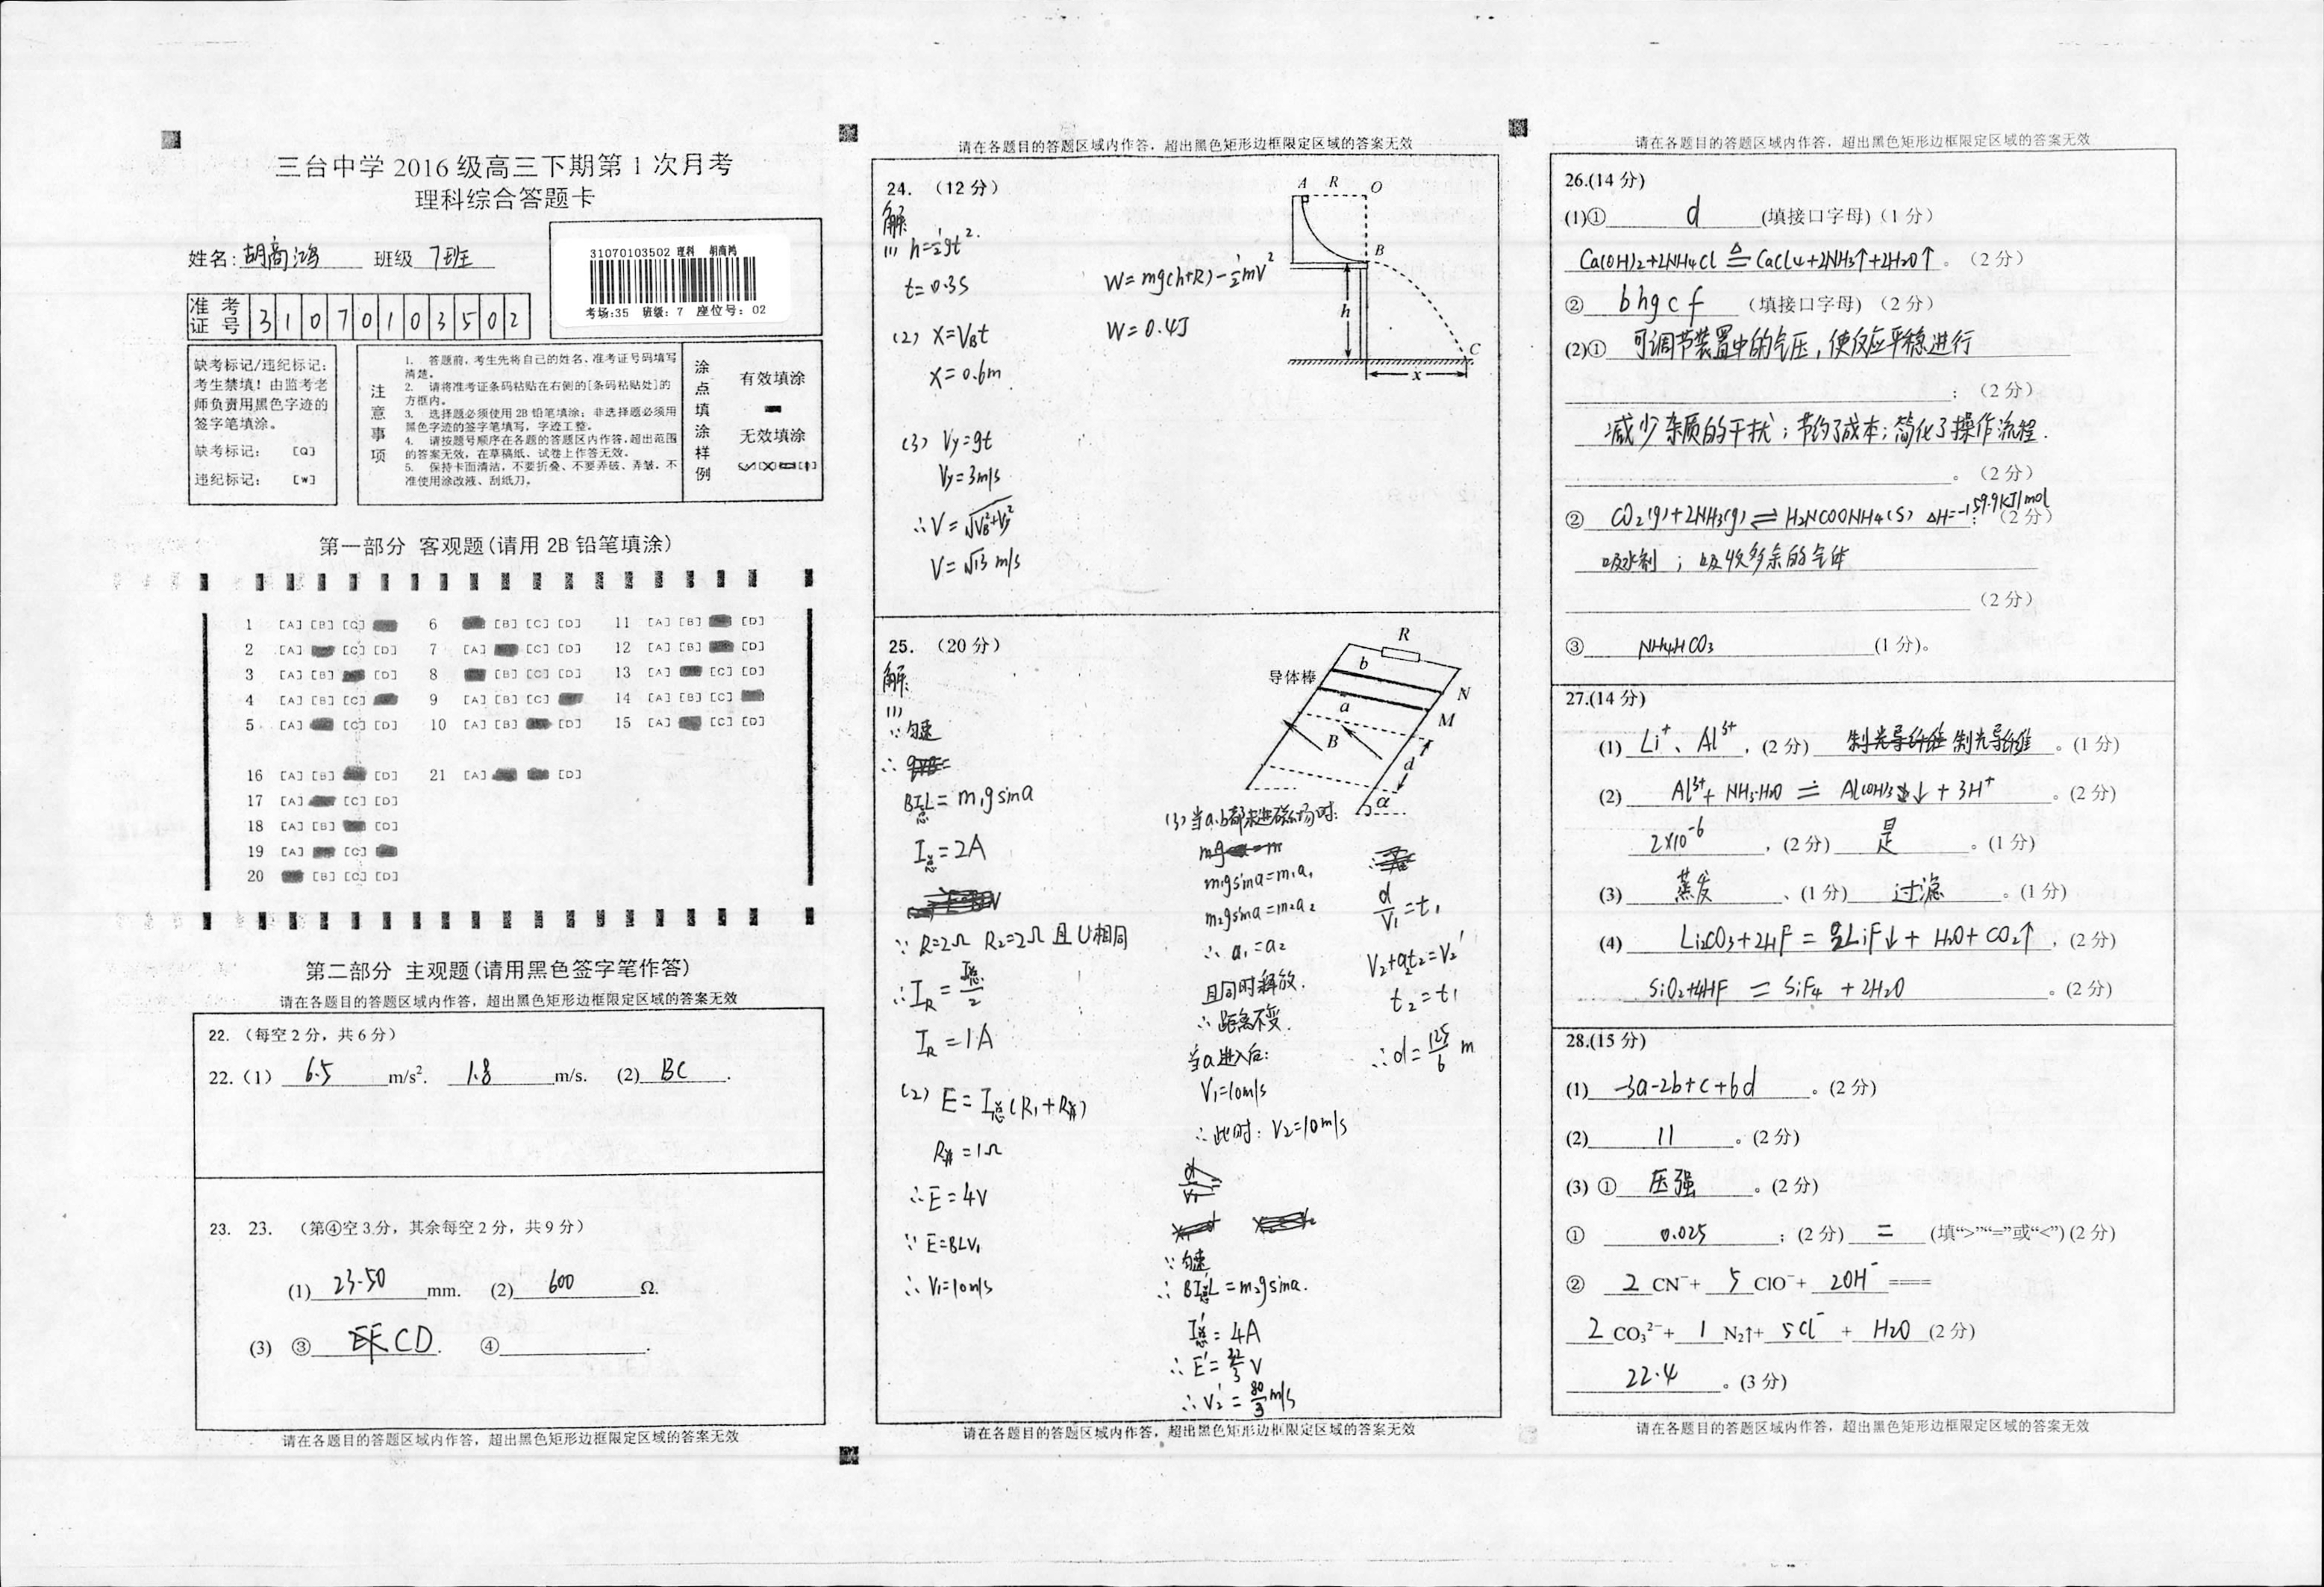 三台中学 2016 级高三下期第 1 次月考
理科综合答题卡
姓名: 胡商鸿 班级 7班
31070103502 理科 胡商鸿
考场:35 班级: 7 座位号: 02
准考证号 3 1 0 7 0 1 0 3 5 0 2
缺考标记/违纪标记:
考生禁填！由监考老
师负责用黑色字迹的
签字笔填涂。
缺考标记: [Q]
违纪标记: [W]
注意事项
1. 答题前,考生先将自己的姓名、准考证号码填写
清楚。
2. 请将准考证条码粘贴在右侧的[条码粘贴处]的
方框内。
3. 选择题必须使用 2B 铅笔填涂; 非选择题必须用
黑色字迹的签字笔填写, 字迹工整。
4. 请按题号顺序在各题的答题区内作答,超出范围
的答案无效, 在草稿纸、试卷上作答无效。
5. 保持卡面清洁, 不要折叠、不要弄破、弄皱, 不
准使用涂改液、刮纸刀。
涂点填涂样例
有效填涂
无效填涂
第一部分 客观题(请用 2B 铅笔填涂)
1 [A] [B] [C] 6 [B] [C] [D] 11 [A] [B] [D]
2 [A] [C] [D] 7 [A] [C] [D] 12 [A] [B] [D]
3 [A] [B] [D] 8 [B] [C] [D] 13 [A] [C] [D]
4 [A] [B] [C] 9 [A] [B] [C] 14 [A] [B] [C]
5 [A] [C] [D] 10 [A] [B] [D] 15 [A] [C] [D]
16 [A] [B] [D] 21 [A] [D]
17 [A] [C] [D]
18 [A] [B] [D]
19 [A] [C]
20 [B] [C] [D]
第二部分 主观题(请用黑色签字笔作答)
请在各题目的答题区域内作答, 超出黑色矩形边框限定区域的答案无效
22. (每空 2 分, 共 6 分)
22.（1） 6.5 m/s². 1.8 m/s. (2) BC .
23. 23. (第④空 3 分, 其余每空 2 分, 共 9 分)
(1) 23.50 mm. (2) 600 Ω.
(3) ③ CD . ④ .
请在各题目的答题区域内作答, 超出黑色矩形边框限定区域的答案无效
请在各题目的答题区域内作答, 超出黑色矩形边框限定区域的答案无效
24. (12 分)
解
(1) h=½gt².
t=0.3s
(2) x=V_Bt
x=0.6m
(3) Vy=gt
Vy=3m/s
∴V=√(V_B²+Vy²)
V=√13 m/s
W=mg(h+R)-½mV²
W=0.4J
A R O
B
h
C
x
25. (20 分)
解:
(1)
∵匀速
∴
BI总L=m₁gsinα
I总=2A
∵R=2Ω R₂=2Ω 且U相同
∴I_R=I总/2
I_R=1A
(2) E=I总(R₁+R并)
R并=1Ω
∴E=4V
∵E=BLV₁
∴V₁=10m/s
R
b
导体棒
a
N
M
B
d
α
(3) 当a.b都未进磁场时:
m₁gsinα=m₁a₁
m₂gsinα=m₂a₂
∴a₁=a₂
且同时释放.
∴距离不变.
当a进入后:
V₁=10m/s
∴此时: V₂=10m/s
∵匀速
∴BI总'L=m₂gsinα.
I总'=4A
∴E'=32/3 V
∴V₂'=80/3 m/s
d/V₁=t₁
V₂+a₂t₂=V₂'
t₂=t₁
∴d=125/6 m
请在各题目的答题区域内作答, 超出黑色矩形边框限定区域的答案无效
请在各题目的答题区域内作答, 超出黑色矩形边框限定区域的答案无效
26.(14 分)
(1)① d (填接口字母)（1 分）
Ca(OH)₂+2NH₄Cl ≜ CaCl₄+2NH₃↑+2H₂O↑ 。（2 分）
② bhgcf (填接口字母) （2 分）
(2)① 可调节装置中的气压, 使反应平稳进行
;（2 分）
减少杂质的干扰; 节约了成本; 简化了操作流程.
。（2 分）
② CO₂(g)+2NH₃(g)⇌H₂NCOONH₄(s) ΔH=-159.9kJ/mol ;（2 分）
吸水剂 ; 吸收多余的气体
（2 分）
③ NH₄HCO₃ (1 分)。
27.(14 分)
(1) Li⁺、Al³⁺ , (2 分) 制光导纤维 制光导纤维 。(1 分)
(2) Al³⁺+ NH₃·H₂O = Al(OH)₃↓ + 3H⁺ 。(2 分)
2×10⁻⁶ , (2 分) 是 。(1 分)
(3) 蒸发 、(1 分) 过滤 。(1 分)
(4) Li₂CO₃+2HF = 2LiF↓+ H₂O+ CO₂↑ , (2 分)
SiO₂+4HF = SiF₄ + 2H₂O 。(2 分)
28.(15 分)
(1) -3a-2b+c+6d 。(2 分)
(2) 11 。(2 分)
(3) ① 压强 。(2 分)
① 0.025 ; (2 分) = (填“>”“=”或“<”) (2 分)
② 2 CN⁻+ 5 ClO⁻+ 2OH⁻ ====
2 CO₃²⁻+ 1 N₂↑+ 5Cl⁻ + H₂O (2 分)
22.4 。(3 分)
请在各题目的答题区域内作答, 超出黑色矩形边框限定区域的答案无效